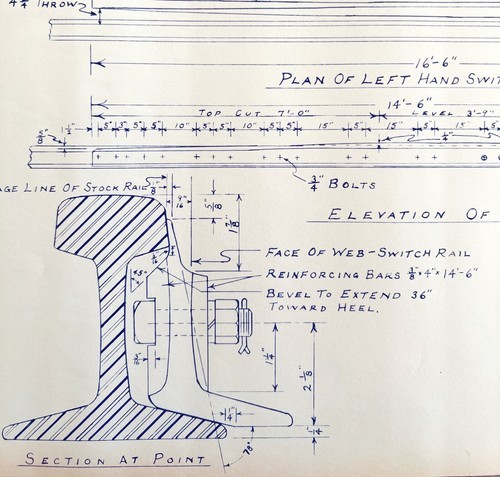 4 3/4" THROW
16'-6"
PLAN OF LEFT HAND SWIT
14'-6"
TOP CUT 7'-0" LEVEL 3'-9"
1 1/2" 5" 3" 5" 5" 10" 5" 5" 10" 5" 5" 15" 5" 15" 5" 15" 5"
5/8" 1/4"
3/4" BOLTS
AGE LINE OF STOCK RAIL 5/8" 9/16" 5/8" 1 7/8"
ELEVATION OF
S FACE OF WEB-SWITCH RAIL
REINFORCING BARS 3/8" × 4" × 14'-6"
BEVEL TO EXTEND 36"
TOWARD HEEL.
45°
1 1/4" 2 1/8"
1/4" 1/4"
78°
SECTION AT POINT